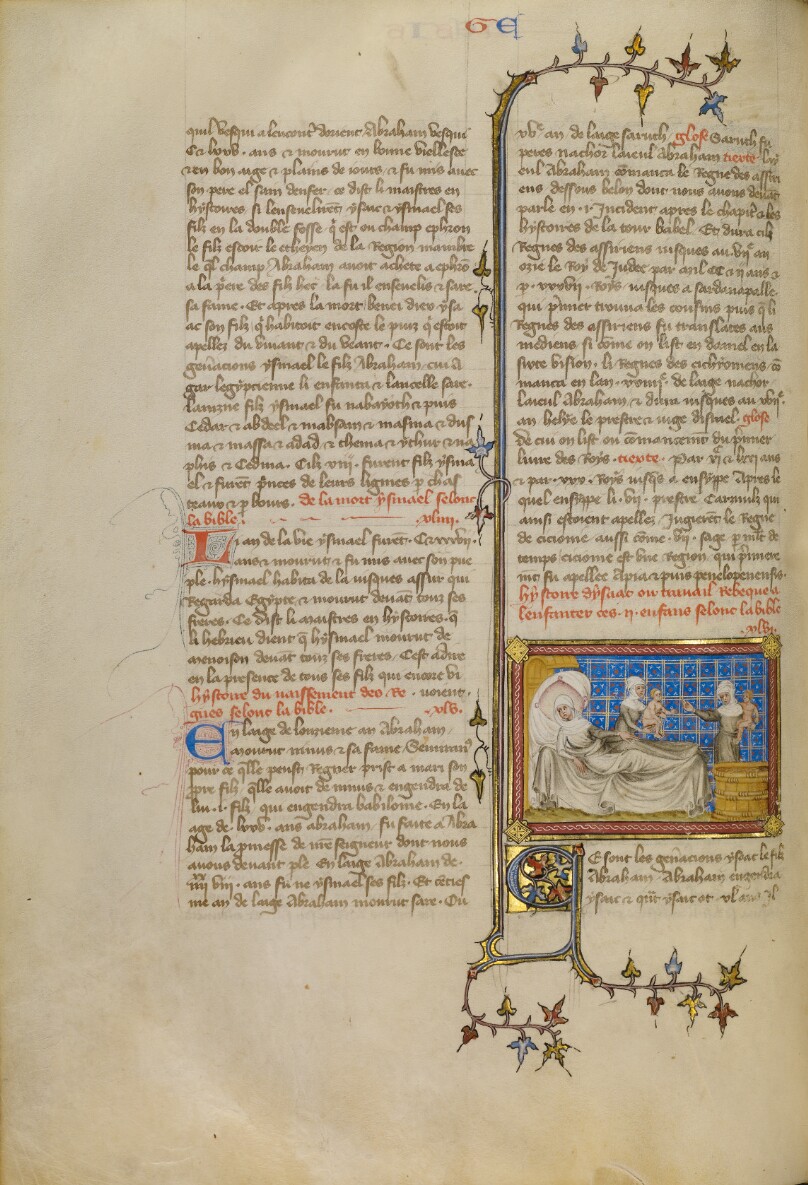 GE
qui vesqui a lencont dorient. Abraham vesqui
C & lxxv. ans & mourut en bonne viellesce
& en bon aige & plains de iours & fu mis avec
son pere el sain denfer. ce dist li maistres en
hystoires. si lensevelirēt ysaac & ysmael ses
filz en la double fosse q̄ est ou champ ephron
le filz seor le etheyen de la Region mambre
le q̄l champ Abraham avoit achete a ephrō
a la p̄ere des filz hec. la fu il ensevelis & sare
sa fame. Et apres la mort benei dieu ysa
ac son filz q̄ habitoit encoste le puiz q̄ estoit
apellez du vivant & du veant. Ce sont les
gen̄acions ysmael le filz Abraham. cui A
gar legypcienne li enfanta & lancelle sare.
lainzne filz ysmael fu nabayoth & puis
Cedar & abdeel & mabsam & masma & dus
ma & massa & adad & thema & ythur & na
phis & Cedma. Cilz furent filz ysma
el & furēt p̄nces de leurs lignies p chas
teaux & p bours. de la mort ysmael selonc
la bible. .xliiii.
Li an de la vie ysmael furēt. C & xxxvii.
ans & mourut & fu mis avec son pue
ple. hysmael habita de la iusques assur qui
Regarda Egypte & mourut devāt touz ses
freres. Ce dist li maistres en hystoires. q̄
li hebrieu dient q̄ hysmael mourut de
menoison devāt touz ses freres. Cest adire
en la presence de tous ses filz qui encore vi
hystoire du naissement des Re. voient.
gnes selonc la bible. .xlv.
En laige de lonzieme an Abraham
mourut ninus & sa fame Semiram̄
pour ce q̄lle peust Regner prist a mari son
p̄pre filz. q̄lle avoit de ninus & engendra de
lui .i. filz qui engendra babiloine. En la
age de. lxxv. ans abraham fu faite a Abra
ham la p̄messe de n̄re seigneur dont nous
avons devant p̄le. En laige Abraham de.
iiii xx vi. ans fu ne ysmael ses filz. Et
me an de laige Abraham mourut sare. Ou
an de laige saruth. glose Saruth fu
peres nachor laieul Abraham. texte. luy
eul Abraham cōmanca le Regne des assiri
ens dessous belon dont nous avons devāt
parle en .i. Incident apres le chapit̄e des
hystoires de la tour babel. Et dura cilz
Regnes des assiriens iusques au. vii.e an
ozie le Roy de Judee par mil & ans &
p. Roys iusques a sardanapalle.
qui p̄mier trouva les coussins puis q̄ li
Regnes des assiriens fu translates aus
mediens si come on list en daniel en la
sixte vision. li Regnes des cichyoniens cō
manca en lan. de laige nachor
laieul Abraham & dura iusques au
an helye le prestre & iuge disrael. glose
de cui on list ou cōmancem̄t du p̄mier
livre des Roys. texte. Par ans
& par. Roys iusq̄s a ensyppe. Apres le
quel ensyppe li. vii. prestre Carmilz qui
ainsi estoient apellez. Jugierēt le Regne
de cicionie aussi cōme. vii. sage p m̄lt de
temps. cicionie est une Region. qui p̄miere
m̄t fu apellee Apia & puis penelopenensis.
hystoire dysaac ou travail Rebeque a
lenfanter ces .ii. enfans selonc la bible
.xlvi.
Ce sont les gen̄acions ysaac le filz
Abraham. Abraham engendra
ysaac & q̄nt ysaac ot. xl ans Il